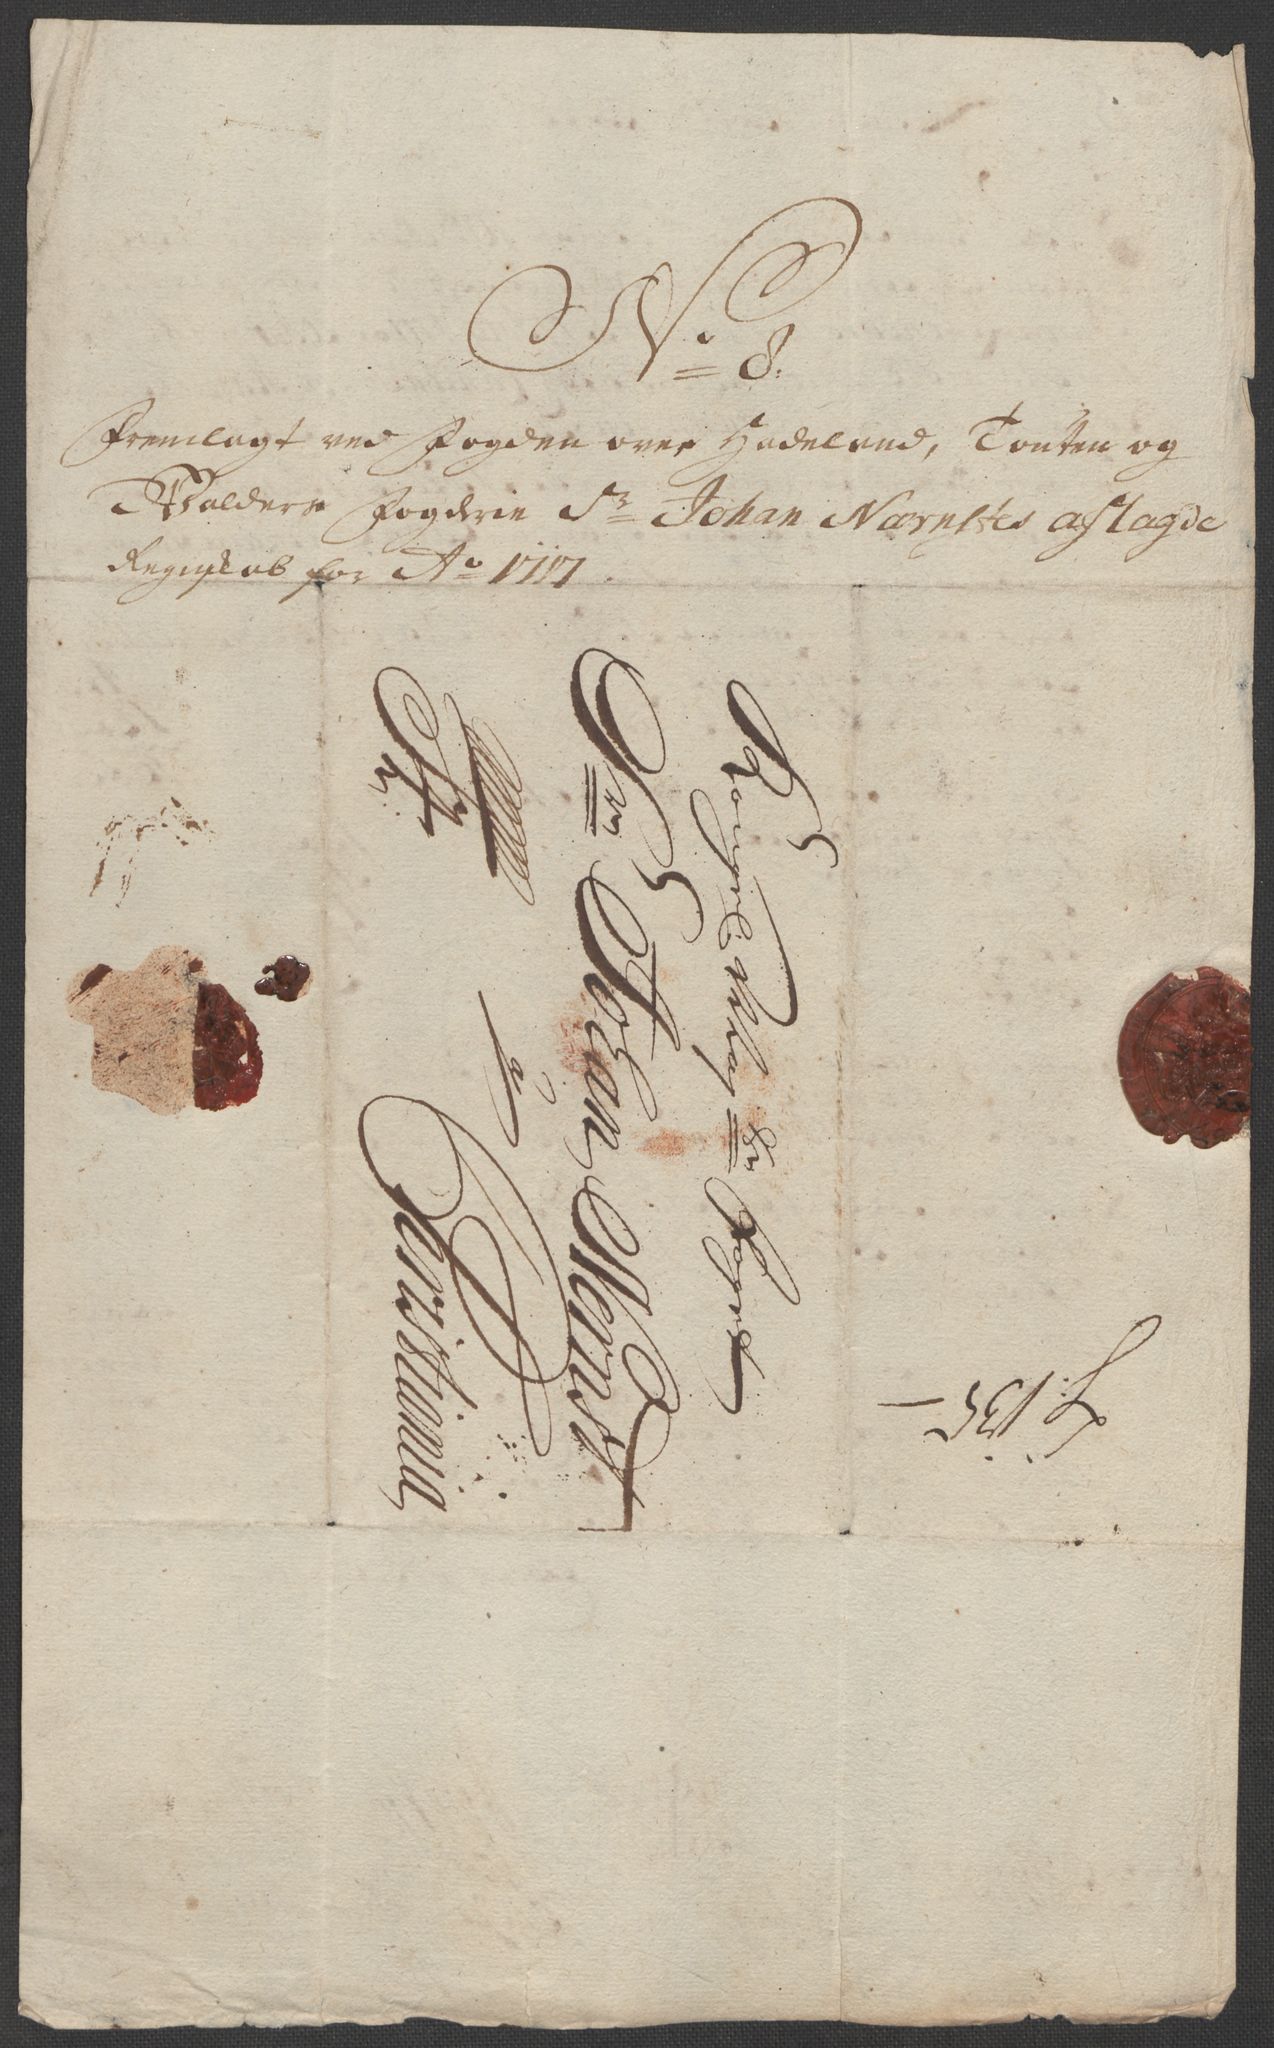 No 8.
Fremlagt ved Fogden over Hadeland, Touten og
Walders Fogderie Sr Johan Nærnstes aflagde
Regnskab for Ao 1717.
Kongel: May Fogd
Sr Johan Nernst
a
Christiania
L: 135 –